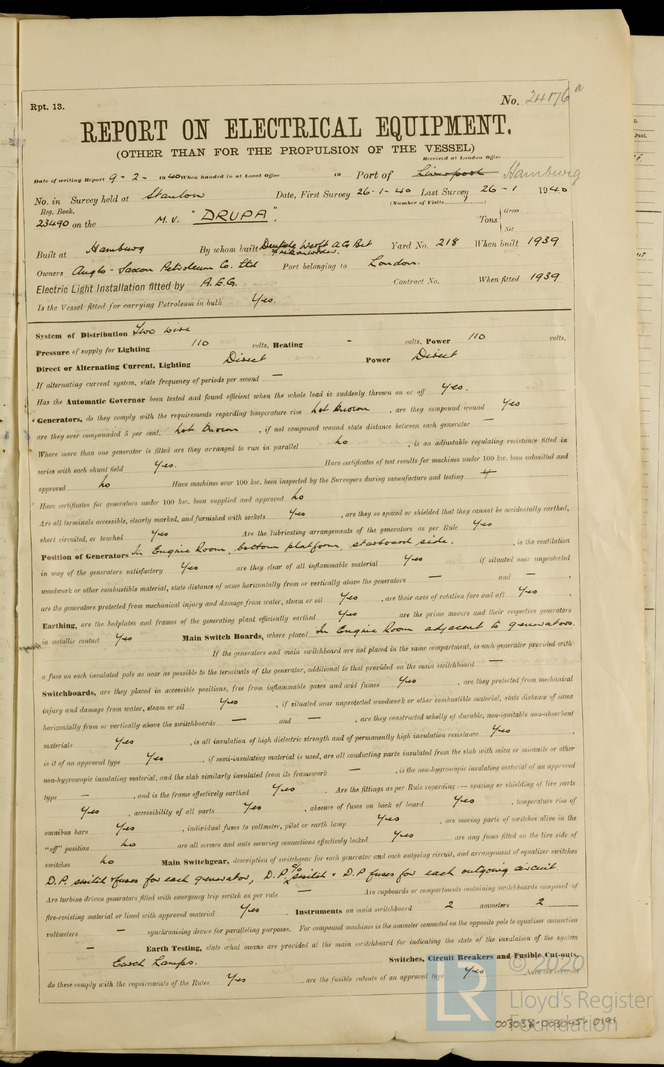 Rpt. 13.
No. 24176 a
REPORT ON ELECTRICAL EQUIPMENT.
(OTHER THAN FOR THE PROPULSION OF THE VESSEL)
Received at London Office
Date of writing Report 9-2-1940 When handed in at Local Office 19 Port of Liverpool Hamburg
No. in Survey held at Stanlow Date, First Survey 26-1-40 Last Survey 26-1 1940
Reg. Book. (Number of Visits
23490 on the M.V. "DRUPA". Tons Gross Net
Built at Hamburg By whom built Deutsche Werft A.G. Bet Yard No. 218 When built 1939
Owners Anglo-Saxon Petroleum Co. Ltd Port belonging to London.
Electric Light Installation fitted by A.E.G. Contract No. When fitted 1939
Is the Vessel fitted for carrying Petroleum in bulk Yes.
System of Distribution Two wire
Pressure of supply for Lighting 110 volts, Heating - volts, Power 110 volts.
Direct or Alternating Current, Lighting Direct Power Direct
If alternating current system, state frequency of periods per second —
Has the Automatic Governor been tested and found efficient when the whole load is suddenly thrown on or off Yes.
Generators, do they comply with the requirements regarding temperature rise not known, are they compound wound Yes
are they over compounded 5 per cent. not known, if not compound wound state distance between each generator —
Where more than one generator is fitted are they arranged to run in parallel no, is an adjustable regulating resistance fitted in
series with each shunt field Yes. Have certificates of test results for machines under 100 kw. been submitted and
approved no Have machines over 100 kw. been inspected by the Surveyors during manufacture and testing
Have certificates for generators under 100 kw. been supplied and approved no
Are all terminals accessible, clearly marked, and furnished with sockets Yes, are they so spaced or shielded that they cannot be accidentally earthed,
short circuited, or touched Yes Are the lubricating arrangements of the generators as per Rule Yes
Position of Generators In Engine Room, bottom platform, starboard side., is the ventilation
in way of the generators satisfactory Yes are they clear of all inflammable material Yes if situated near unprotected
woodwork or other combustible material, state distance of same horizontally from or vertically above the generators — and —
are the generators protected from mechanical injury and damage from water, steam or oil Yes, are their axes of rotation fore and aft Yes.
Earthing, are the bedplates and frames of the generating plant efficiently earthed Yes are the prime movers and their respective generators
in metallic contact Yes Main Switch Boards, where placed In Engine Room adjacent to generators.
If the generators and main switchboard are not placed in the same compartment, is each generator provided with
a fuse on each insulated pole as near as possible to the terminals of the generator, additional to that provided on the main switchboard —
Switchboards, are they placed in accessible positions, free from inflammable gases and acid fumes Yes, are they protected from mechanical
injury and damage from water, steam or oil Yes, if situated near unprotected woodwork or other combustible material, state distance of same
horizontally from or vertically above the switchboards — and —, are they constructed wholly of durable, non-ignitable non-absorbent
materials Yes, is all insulation of high dielectric strength and of permanently high insulation resistance Yes
is it of an approved type Yes, if semi-insulating material is used, are all conducting parts insulated from the slab with mica or micanite or other
non-hygroscopic insulating material, and the slab similarly insulated from its framework —, is the non-hygroscopic insulating material of an approved
type —, and is the frame effectively earthed Yes. Are the fittings as per Rule regarding:— spacing or shielding of live parts
Yes, accessibility of all parts Yes, absence of fuses on back of board Yes, temperature rise of
omnibus bars Yes, individual fuses to voltmeter, pilot or earth lamp Yes, are moving parts of switches alive in the
"off" position no are all screws and nuts securing connections effectively locked Yes are any fuses fitted on the live side of
switches no Main Switchgear, description of switchgear for each generator and each outgoing circuit, and arrangement of equalizer switches
D.P. switch fuses for each generator, D.P. c/o switch + D.P fuses for each outgoing circuit
Are turbine driven generators fitted with emergency trip switch as per rule — Are cupboards or compartments containing switchboards composed of
fire-resisting material or lined with approved material Yes Instruments on main switchboard 2 ammeters 2
voltmeters — synchronising device for paralleling purposes. For compound machines is the ammeter connected on the opposite pole to equaliser connection
— Earth Testing, state what means are provided at the main switchboard for indicating the state of the insulation of the system
Earth Lamps. Switches, Circuit Breakers and Fusible Cut-outs,
do these comply with the requirements of the Rules Yes, are the fusible cutouts of an approved type Yes
© 2020
LR
Lloyd's Register
Foundation
003038-003045-0191